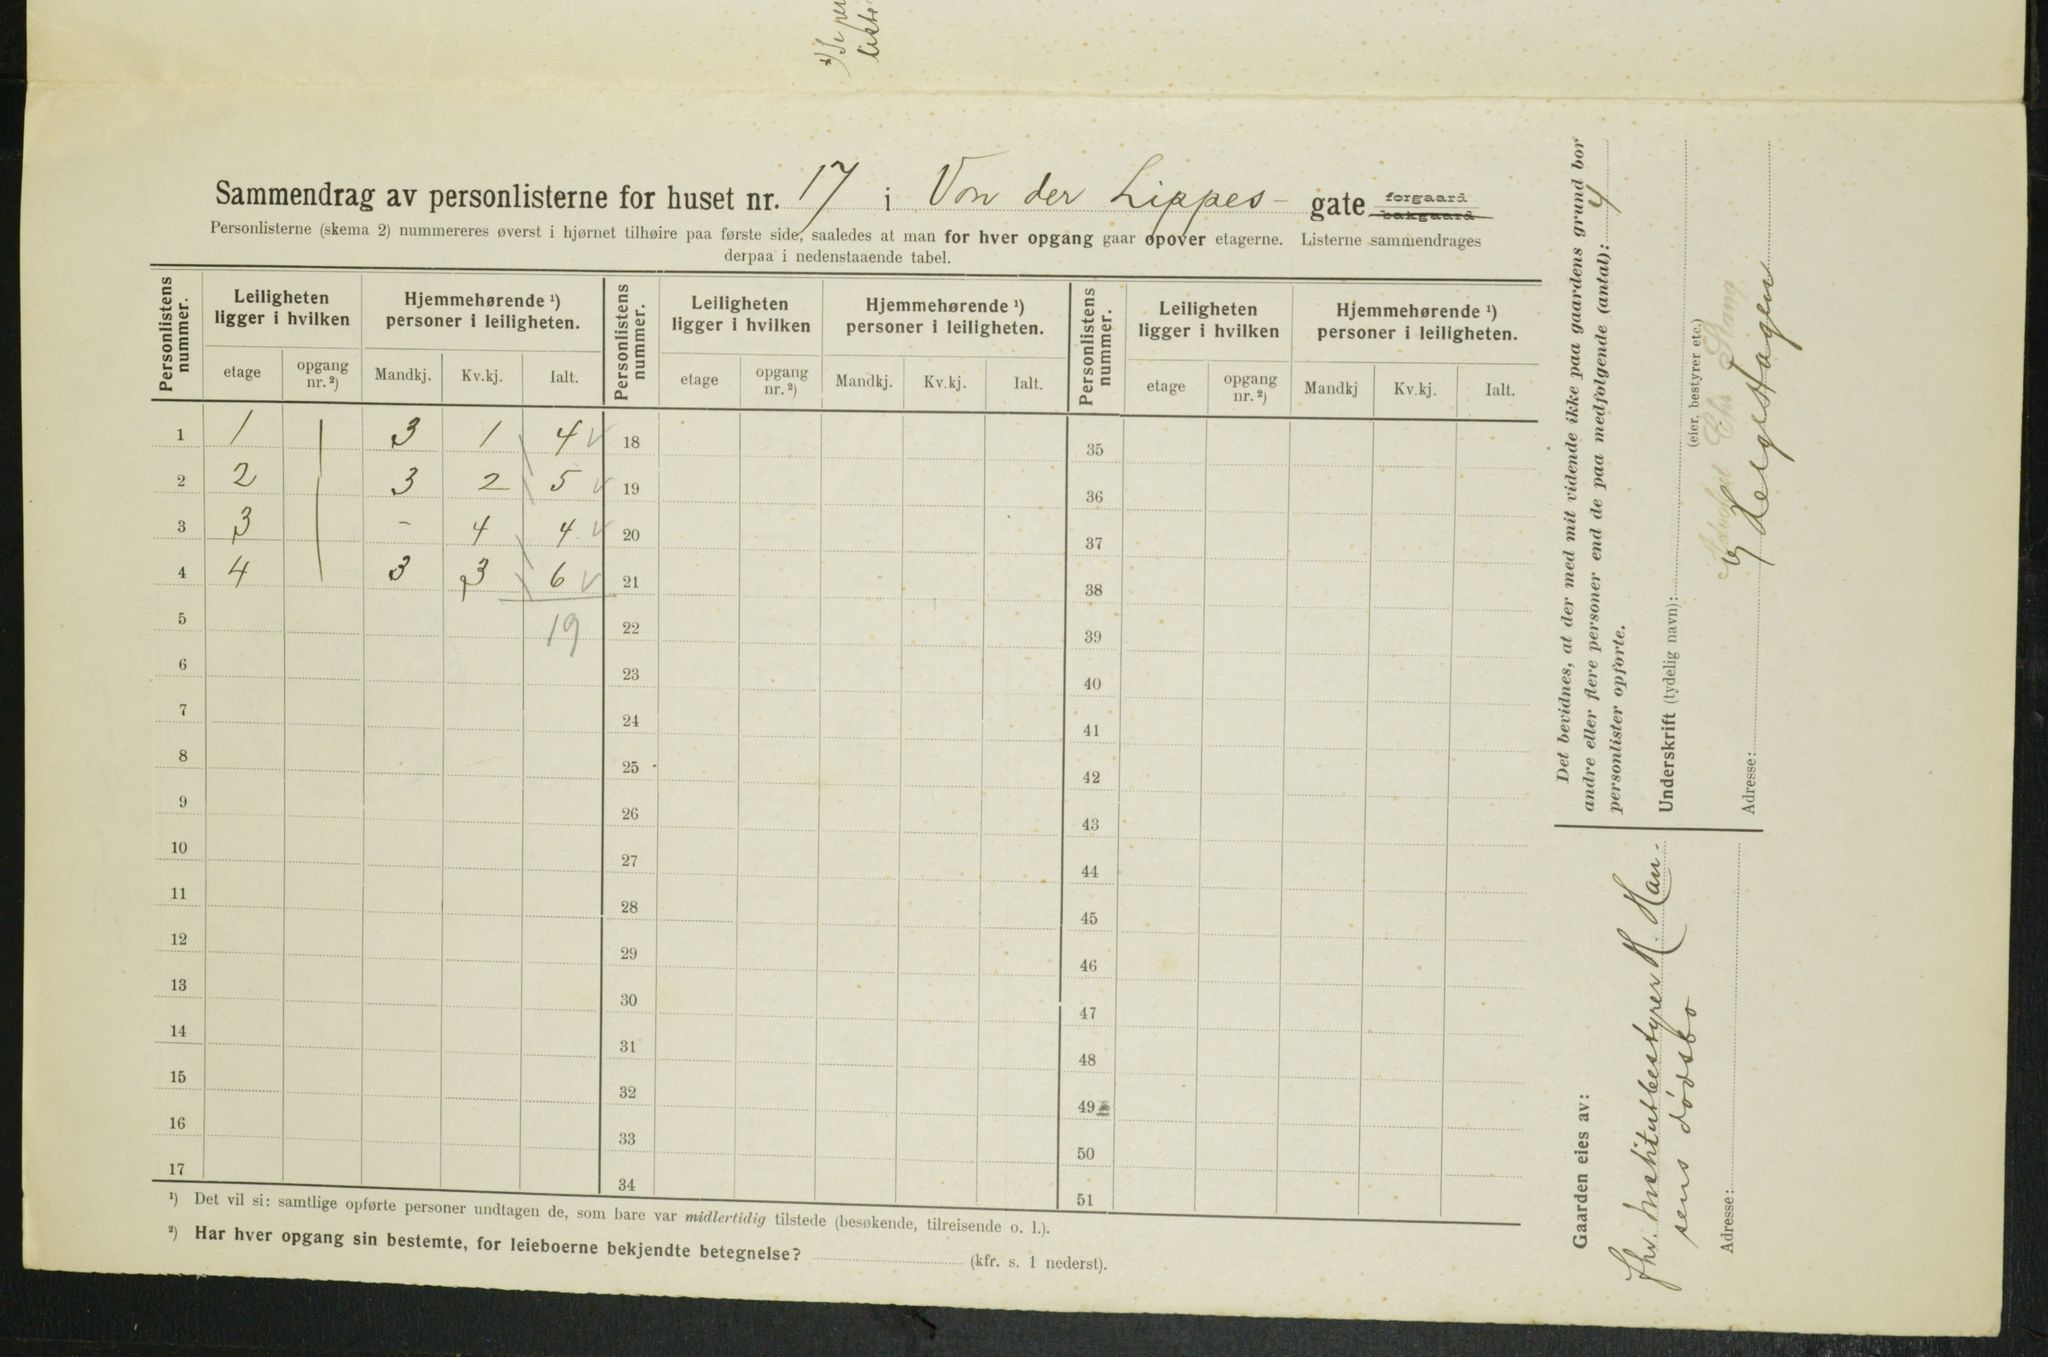 *) Se per
liste
Sammendrag av personlisterne for huset nr. 17 i Von der Lippes- gate forgaard bakgaard
Personlisterne (skema 2) nummereres øverst i hjørnet tilhøire paa første side, saaledes at man for hver opgang gaar opover etagerne. Listerne sammendrages
derpaa i nedenstaaende tabel.
Personlistens nummer. Leiligheten ligger i hvilken Hjemmehørende ¹) personer i leiligheten. Personlistens nummer. Leiligheten ligger i hvilken Hjemmehørende ¹) personer i leiligheten. Personlistens nummer. Leiligheten ligger i hvilken Hjemmehørende ¹) personer i leiligheten.
etage opgang nr. ²) Mandkj. Kv.kj. Ialt. etage opgang nr. ²) Mandkj. Kv.kj. Ialt. etage opgang nr. ²) Mandkj Kv.kj. Ialt.
1 1 3 1 4 18 35
2 2 3 2 5 19 36
3 3 - 4 4 20 37
4 4 3 3 6 21 38
5 19 22 39
6 23 40
7 24 41
8 25 42
9 26 43
10 27 44
11 28 45
12 29 46
13 30 47
14 31 48
15 32 49
16 33 50
17 34 51
¹) Det vil si: samtlige opførte personer undtagen de, som bare var midlertidig tilstede (besøkende, tilreisende o. l.).
²) Har hver opgang sin bestemte, for leieboerne bekjendte betegnelse? (kfr. s. 1 nederst).
Det bevidnes, at der med mit vidende ikke paa gaardens grund bor
andre eller flere personer end de paa medfølgende (antal): 4
personlister opførte.
Underskrift (tydelig navn):
(eier, bestyrer etc.)
Chr Stang
Adresse:
Gaarden eies av:
fhv. Institutbestyrer H. Han-
sens dödsbo
Adresse: